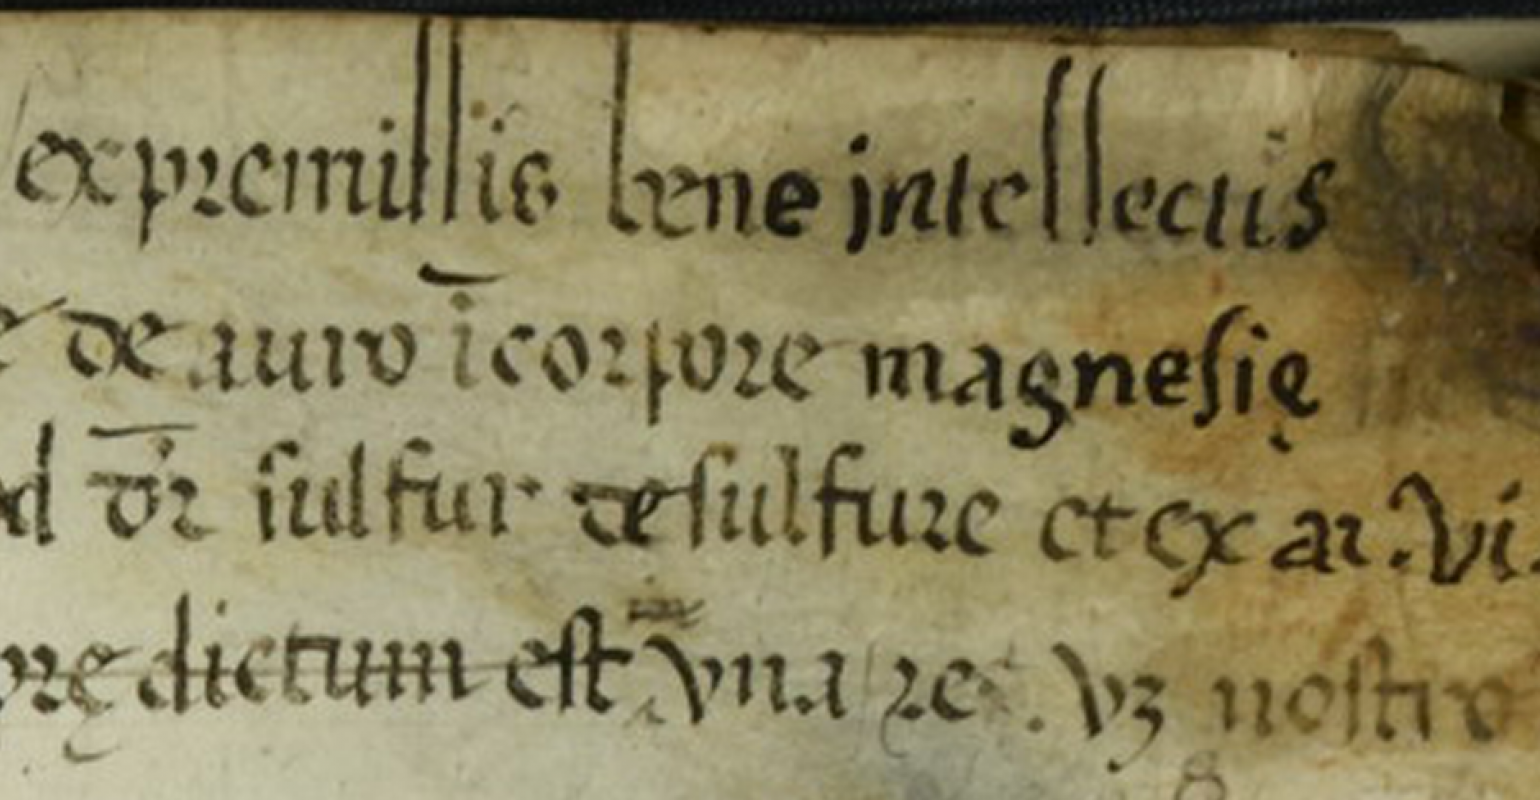 ex premissis bene intellectis
de auro ī corpore magnesię
d dr̄ sulfur de sulfure et ex ar. vi.
dictum est vna re. vz nostro